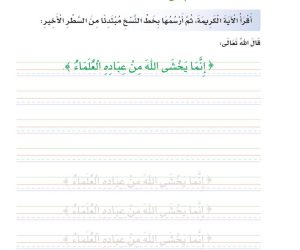 أَقْرَأُ الْآيَةَ الْكَرِيمَةَ، ثُمَّ أَرْسُمُهَا بِخَطِّ النَّسْخِ مُبْتَدِئًا مِنَ السَّطْرِ الْأَخِيرِ:
قَالَ اللهُ تَعَالَى:
﴿ إِنَّمَا يَخْشَى اللهَ مِنْ عِبَادِهِ الْعُلَمَاءُ ﴾.
﴿ إِنَّمَا يَخْشَى اللهَ مِنْ عِبَادِهِ الْعُلَمَاءُ ﴾.
﴿ إِنَّمَا يَخْشَى اللهَ مِنْ عِبَادِهِ الْعُلَمَاءُ ﴾.
﴿ إِنَّمَا يَخْشَى اللهَ مِنْ عِبَادِهِ الْعُلَمَاءُ ﴾.